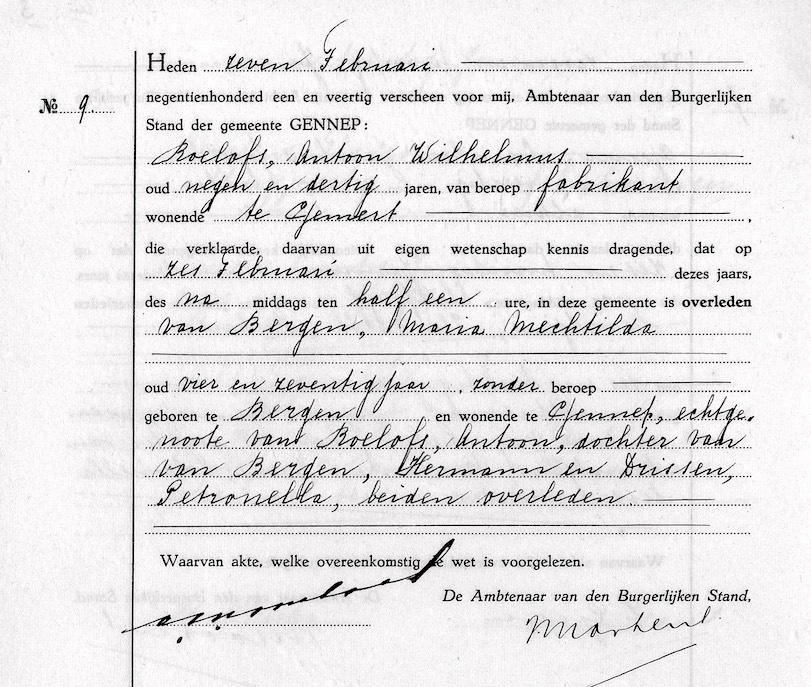 Heden zeven Februari
negentienhonderd een en veertig verscheen voor mij, Ambtenaar van den Burgerlijken
No 9.
Stand der gemeente GENNEP:
Roelofs, Antoon Wilhelmus
oud negen en dertig jaren, van beroep fabrikant
wonende te Gemert,
die verklaarde, daarvan uit eigen wetenschap kennis dragende, dat op
zes Februari dezes jaars,
des na middags ten half een ure, in deze gemeente is overleden
van Bergen, Maria Mechtilda
oud vier en zeventig jaar, zonder beroep
geboren te Bergen, en wonende te Gennep, echtge-
noote van Roelofs, Antoon, dochter van
van Bergen, Hermann en Drissen,
Petronella, beiden overleden.
Waarvan akte, welke overeenkomstig de wet is voorgelezen.
De Ambtenaar van den Burgerlijken Stand,